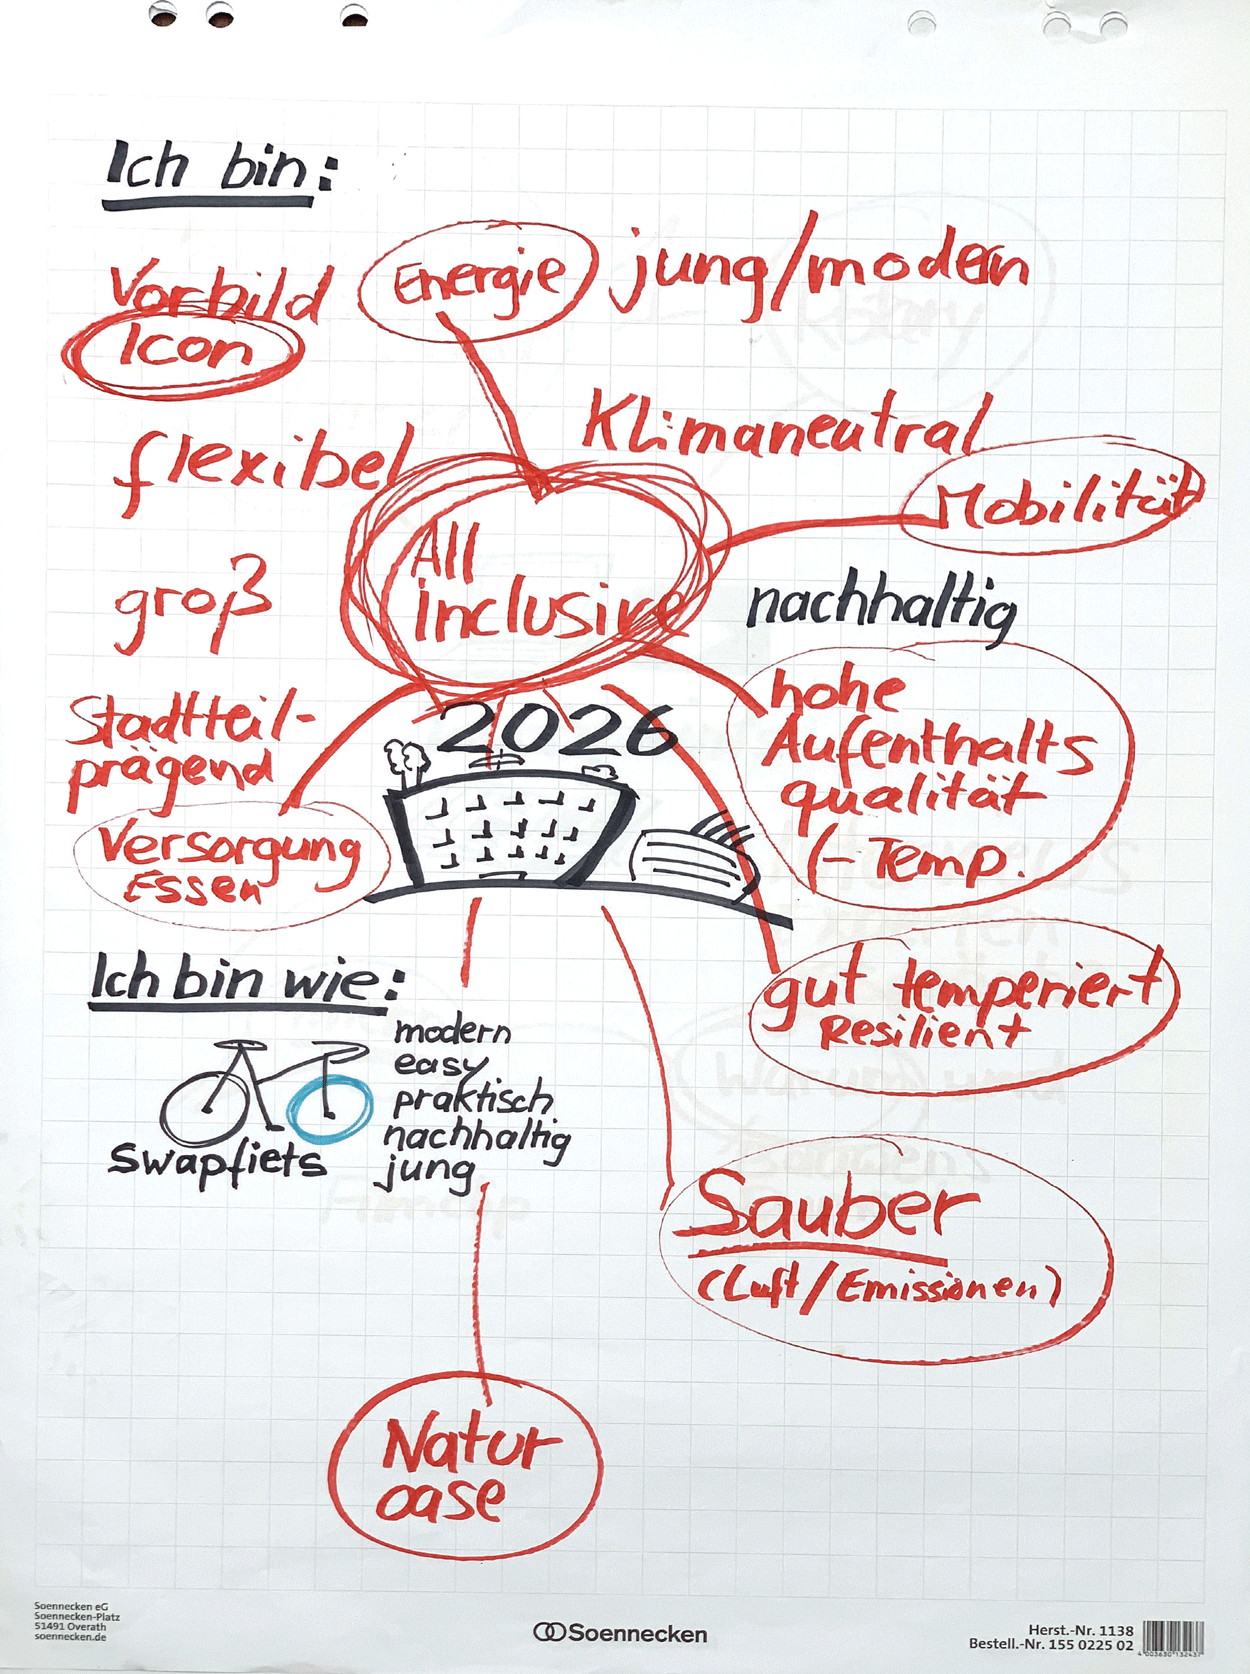 Ich bin:
Vorbild
Icon
Energie
jung/modern
flexibel
Klimaneutral
Mobilität
All
inclusive
groß
nachhaltig
Stadtteil-
prägend
2026
hohe
Aufenthalts
qualität
(- Temp.
Versorgung
Essen
gut temperiert
Resilient
Ich bin wie:
modern
easy
praktisch
nachhaltig
jung
swapfiets
Sauber
(Luft/Emissionen)
Natur
oase
Soennecken eG
Soennecken-Platz
51491 Overath
soennecken.de
Soennecken
Herst.-Nr. 1138
Bestell.-Nr. 155 0225 02
4 003630 132437